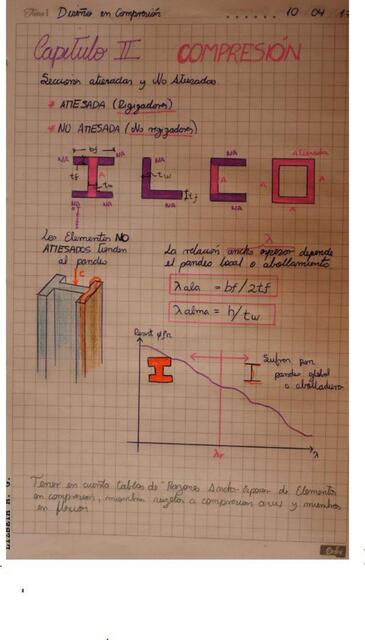 Tema 1 Diseño en Compresión 10 04 17
Capitulo II COMPRESIÓN
Secciones atiesadas y No Atiesadas
* ATIESADA (Rigizadores)
* NO ATIESADA (No rigizadores)
bf
NA NA NA Atiesada
tf A tw A A A
tw tf
NA NA NA A
Los Elementos NO
ATIESADOS tienden
al pandeo
C
λ
La relación ancho espesor depende
el pandeo local o abollamiento
λ ala = bf/2tf
λ alma = h/tw
Resist φPn
Sufren por
pandeo global
o abolladura
λr
λ
Tener en cuenta tablas de "Razones Ancho-Espesor de Elementos
en compresion, miembros sujetos a compresion axial y miembros
en flexion